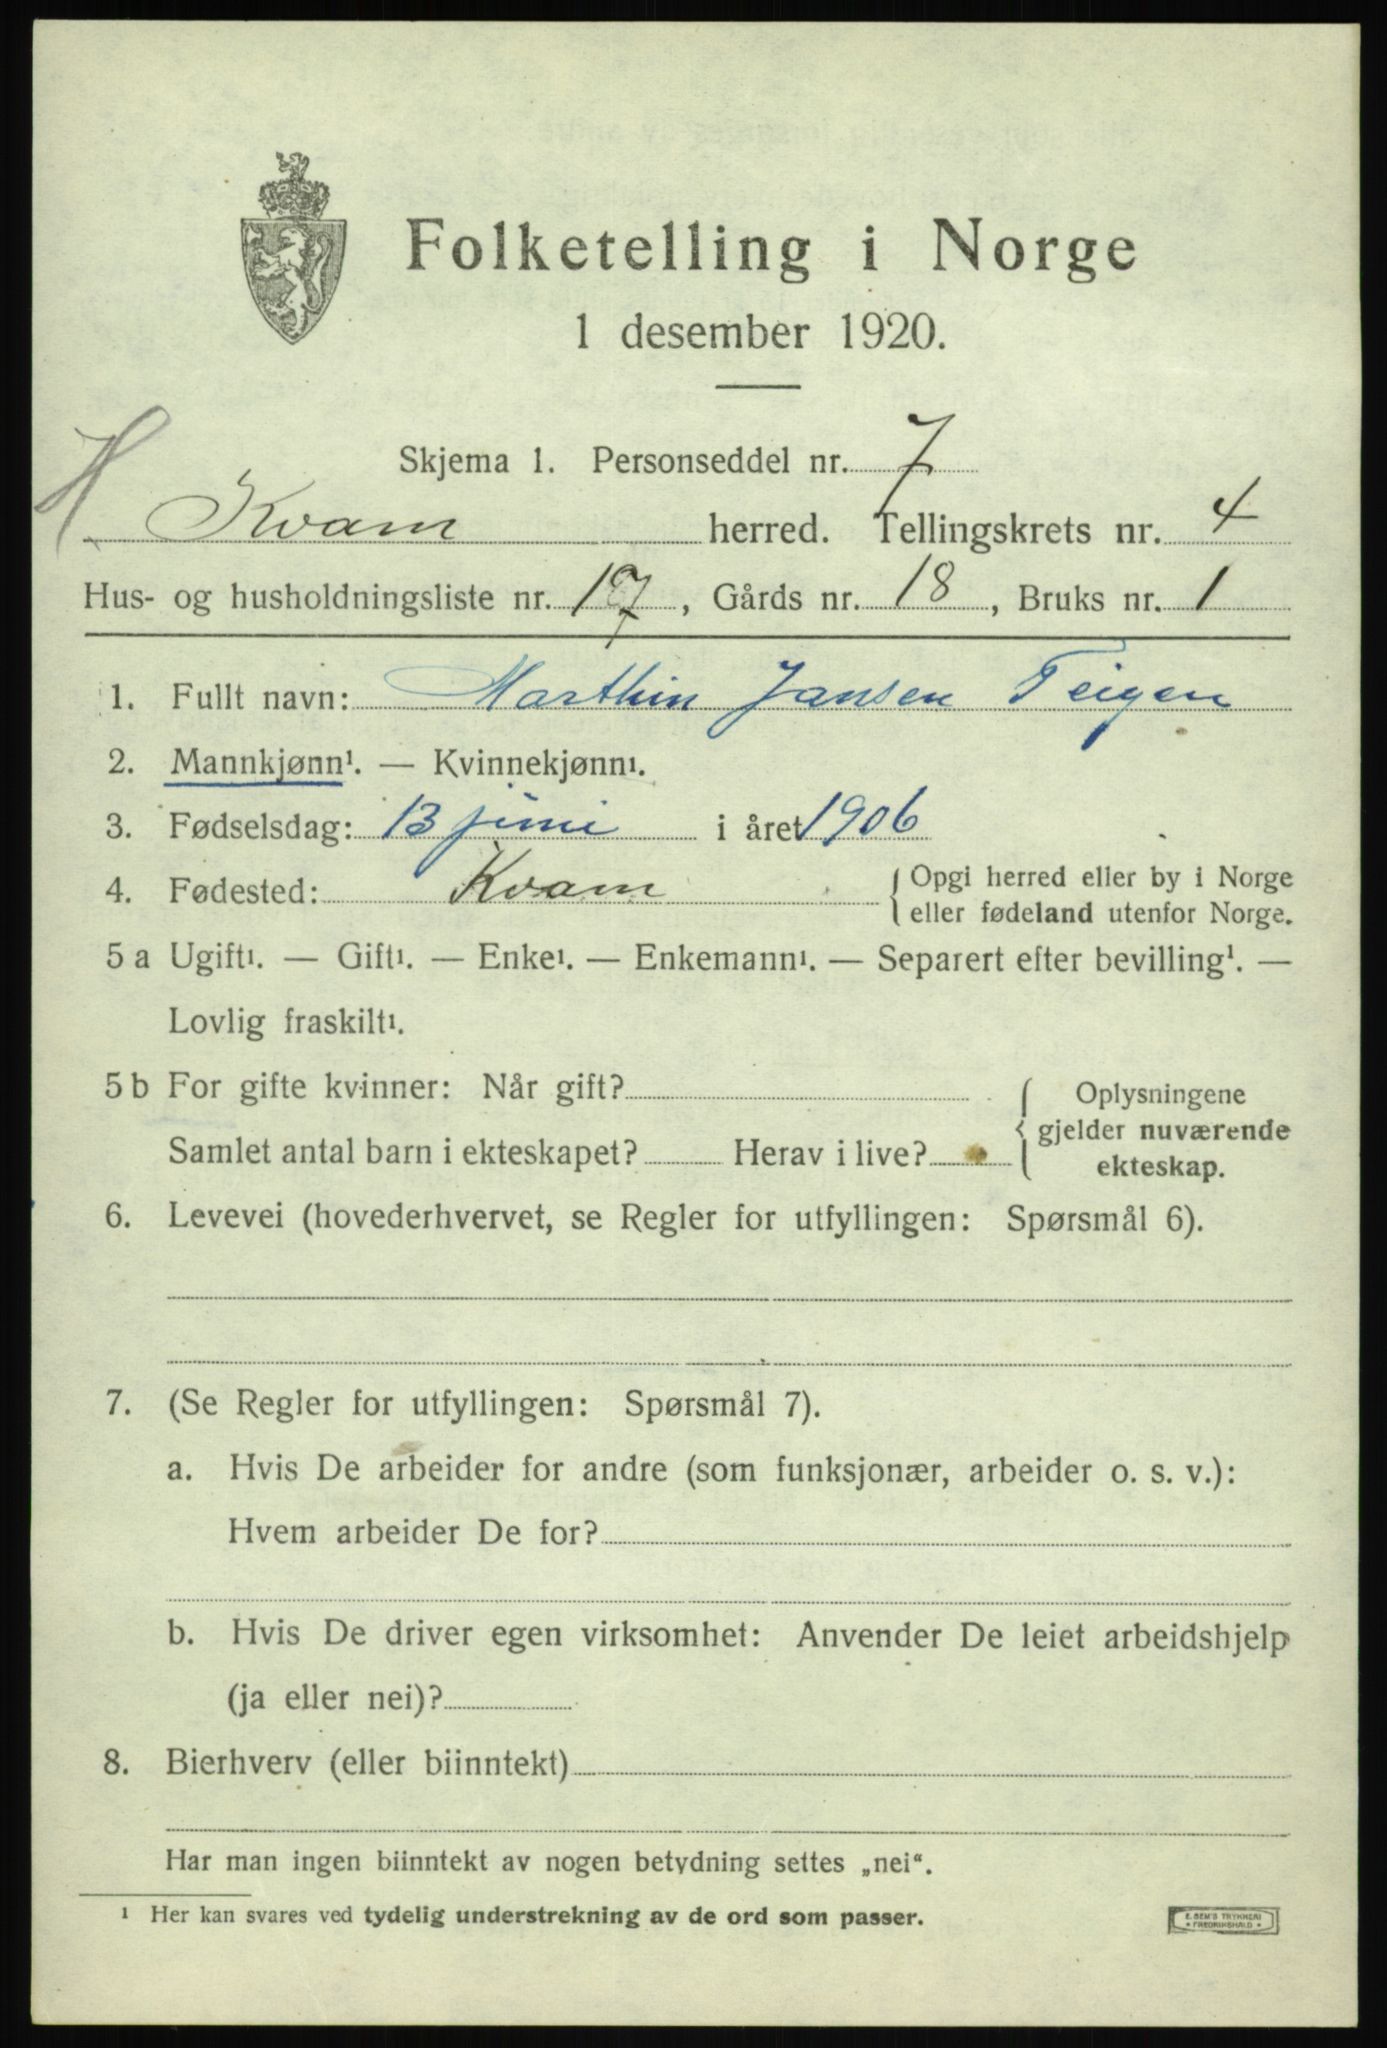 Folketelling i Norge
1 desember 1920.
Skjema 1. Personseddel nr. 7
H
Kvam herred. Tellingskrets nr. 4
Hus- og husholdningsliste nr. , Gårds nr. 18, Bruks nr. 1
1. Fullt navn: Marthin Jansen Teigen
2. Mannkjønn¹. — Kvinnekjønn¹.
3. Fødselsdag: 13 juni i året 1906
4. Fødested: Kvam { Opgi herred eller by i Norge
eller fødeland utenfor Norge.
5 a Ugift¹. — Gift¹. — Enke¹. — Enkemann¹. — Separert efter bevilling¹. —
Lovlig fraskilt¹.
5 b For gifte kvinner: Når gift? { Oplysningene
gjelder nuværende
Samlet antal barn i ekteskapet? Herav i live? ekteskap.
6. Levevei (hovederhvervet, se Regler for utfyllingen: Spørsmål 6).
7. (Se Regler for utfyllingen: Spørsmål 7).
a. Hvis De arbeider for andre (som funksjonær, arbeider o. s. v.):
Hvem arbeider De for?
b. Hvis De driver egen virksomhet: Anvender De leiet arbeidshjelp
(ja eller nei)?
8. Bierhverv (eller biinntekt)
Har man ingen biinntekt av nogen betydning settes „nei“.
¹ Her kan svares ved tydelig understrekning av de ord som passer.
E. SEM'S TRYKKERI
• FREDRIKSHALD •